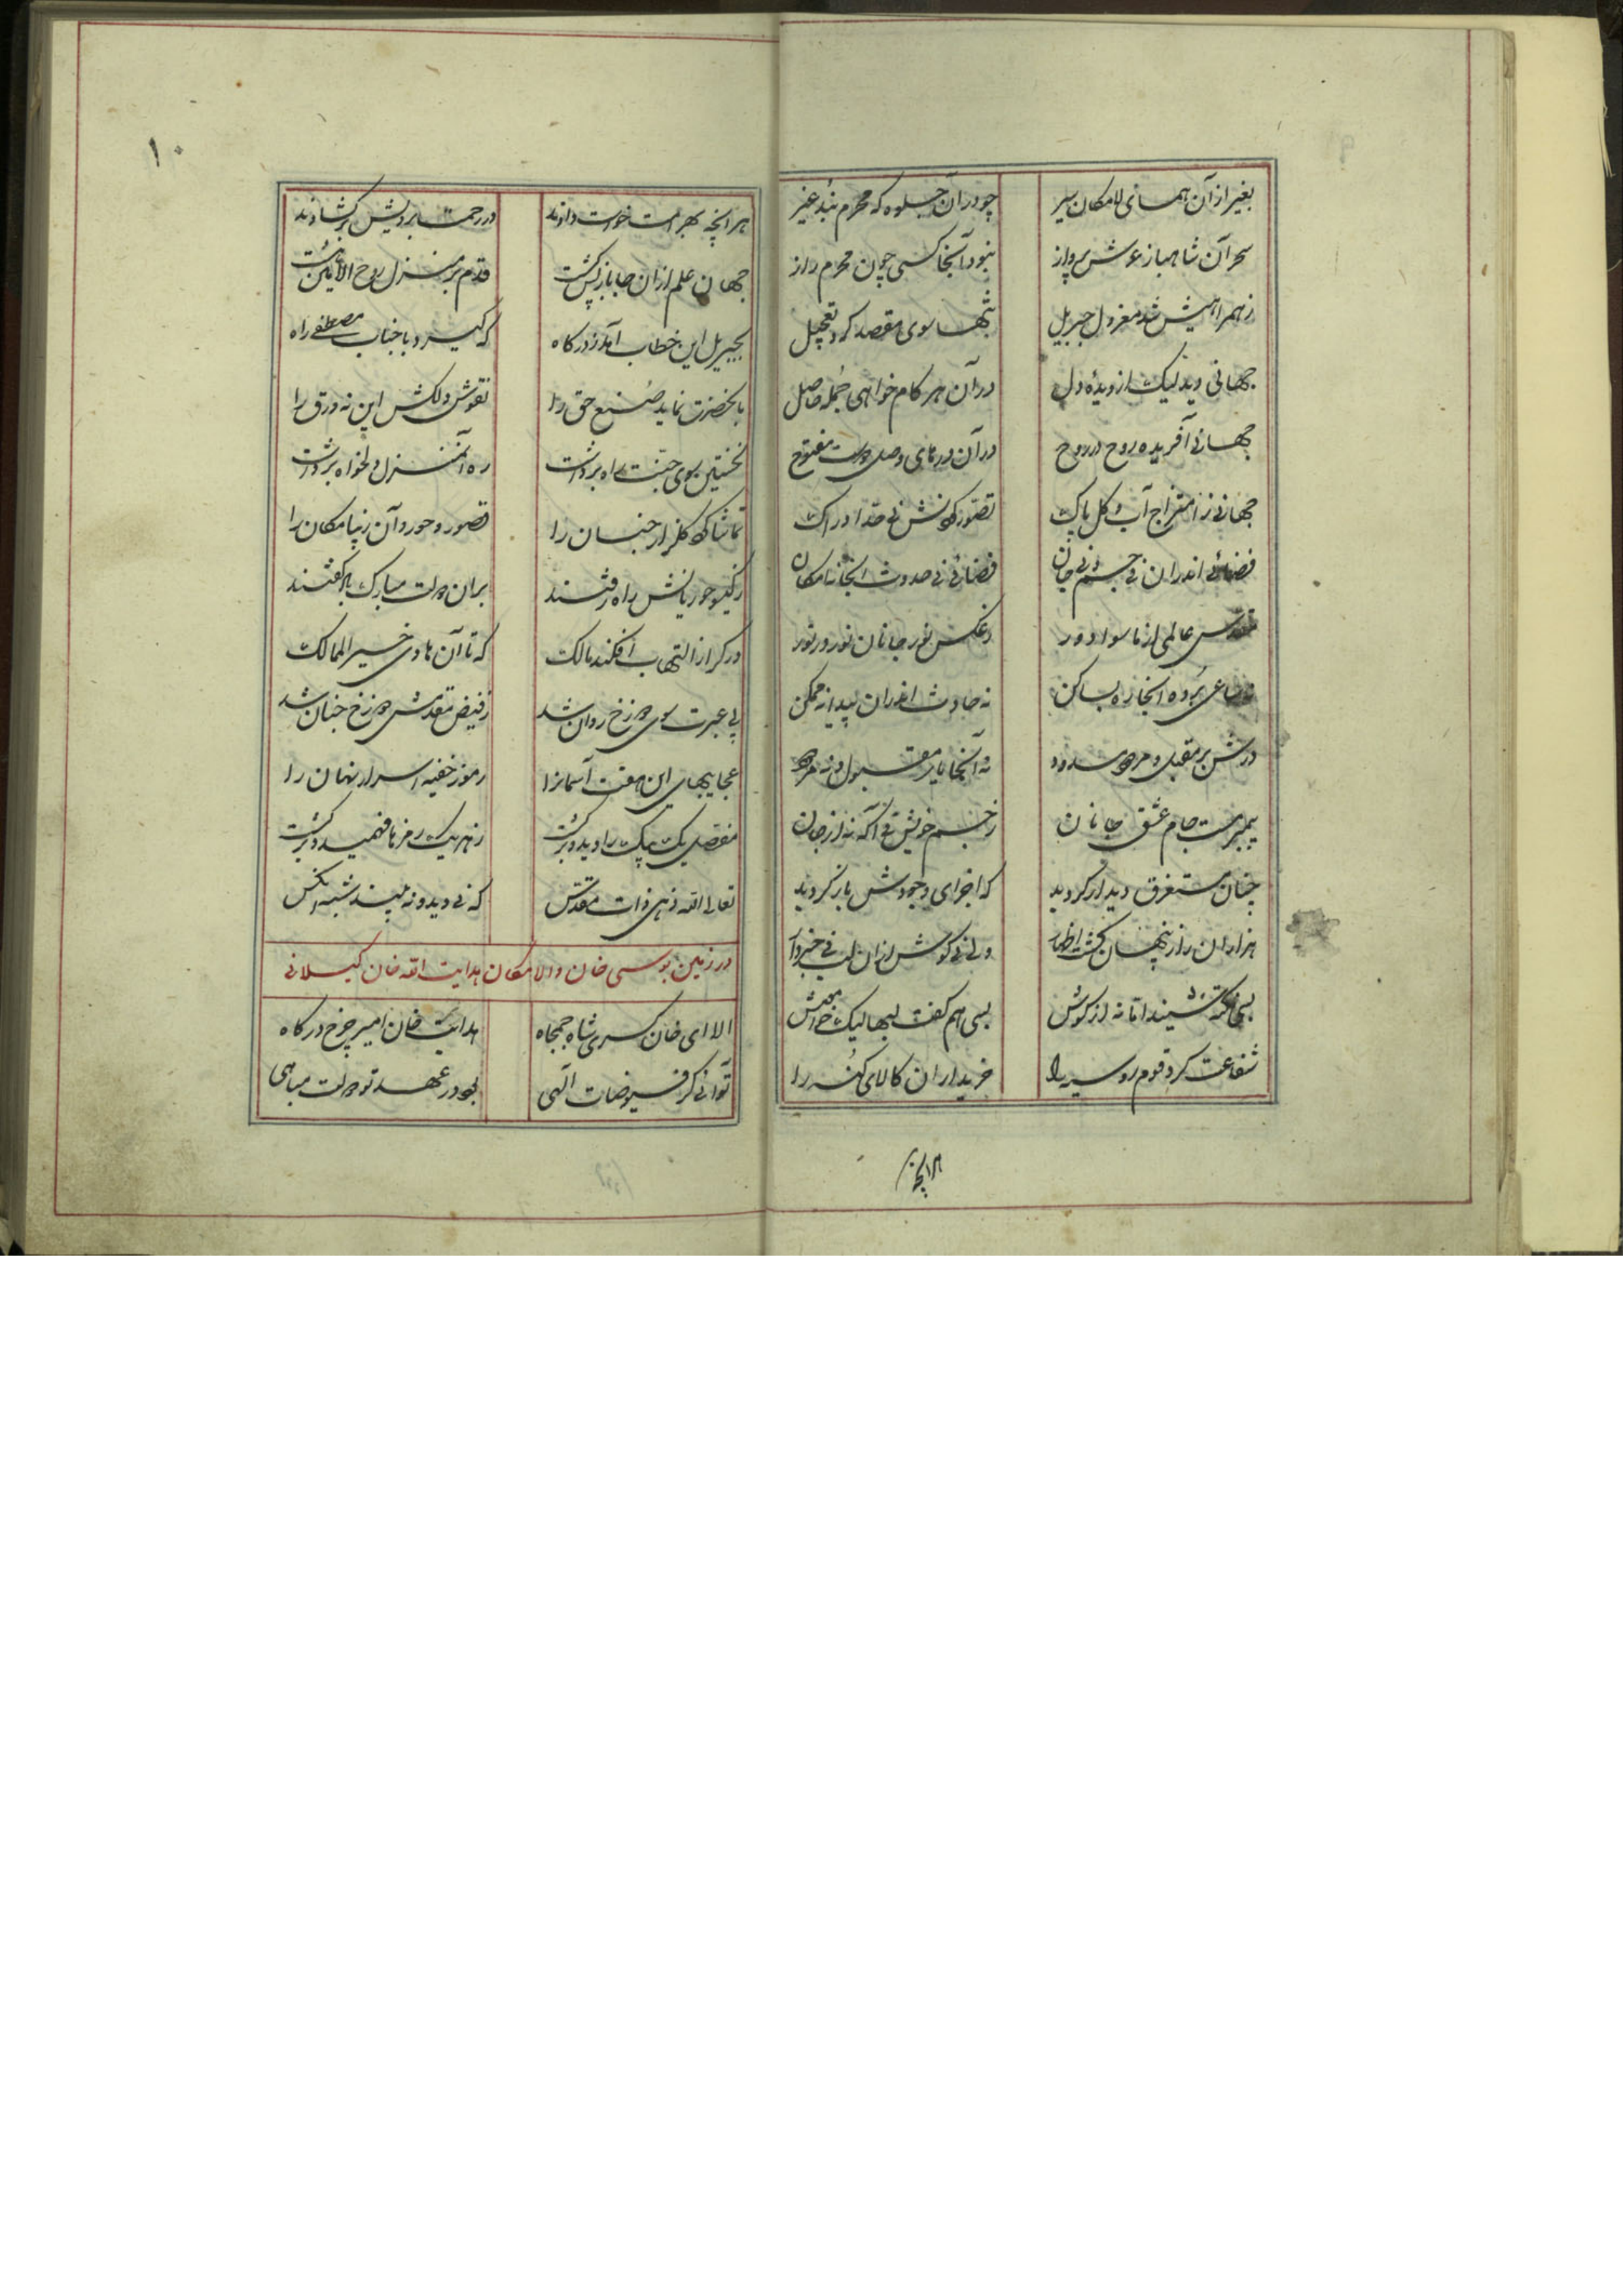 بغیر از آن همای لامکان سیر چو در آن جلوه که محرم نبد غیر
بجز آن شاهباز عرش پرواز نبود آنجا کسی چون محرم راز
ز همراهیش شد معزول جبریل تنها سوی مقصد کرد تعجیل
جهانی دید لیک از دیدهٔ دل در آن هر کام خواهی جمله حاصل
جهانی آفریده روح در روح در آن درهای وصل دوست مفتوح
جهانی ز امتزاج آب و کل پاک تصور کردنش نی حد ادراک
فضائی اندران نی جسم و نی جان فضائی نی حدوث آنجا نه امکان
مقدس عالمی از ماسوا دور ز عکس نور جانان نور در نور
نه حادث اندران پیدا نه ممکن
درش بر مقبل و مردود مسدود نه آنجا نام مقبول و نه مردود
پیمبر مست جام عشق جانان ز جسم خویش نی آگه نه از جان
چنان مستغرق دیدار کردید که اجزای وجودش یار کردید
هزاران راز پنهان کشت اظهار ولی نی کوش ازان لب نی خبردار
بسی نکته شنید اما نه از کوش بسی هم کفت لبها لیک خاموش
شفاعت کرد قوم روسیه را خریداران کالای کنه را
هرانچه
۱۰
هر انچه بهر امت خواست دادند در رحمت برویش برکشادند
جهان علم ازان جا باز پس کشت قدم بر منزل روح الامین هشت
بجبریل این خطاب آمد ز درکاه که کیرد با جناب مصطفی راه
بانحضرت نماید صنع حق را نقوش دلکش این نه ورق را
نخستین سوی جنت راه برداشت ره آن منزل دلخواه برداشت
تماشا کرد کلزار جنان را قصور و حور و آن زیبا مکان را
ز کیسو حوریانش راه رفتند بران دولت مبارک باد کفتند
دکر از التهاب افکند مالک که تا آن هادی خیر الممالک
پی عبرت سوی دوزخ روان شد ز فیض مقدمش دوزخ جنان شد
عجایبهای این هفت آسمانرا رموز خفیه اسرار نهان را
مفصل یک بیک را دید و برکشت ز هر یک رمزها فهمید و برکشت
تعالی الله زهی ذات مقدس که نی دید و نه بیند شبه او کس
در زمین بوسی خان والامکان هدایت الله خان کیلانی
الا ای خان کسری شاه جمجاه هدایت خان امیر چرخ درکاه
توانی کز فیوضات الهی بود در عهد تو دولت مباهی